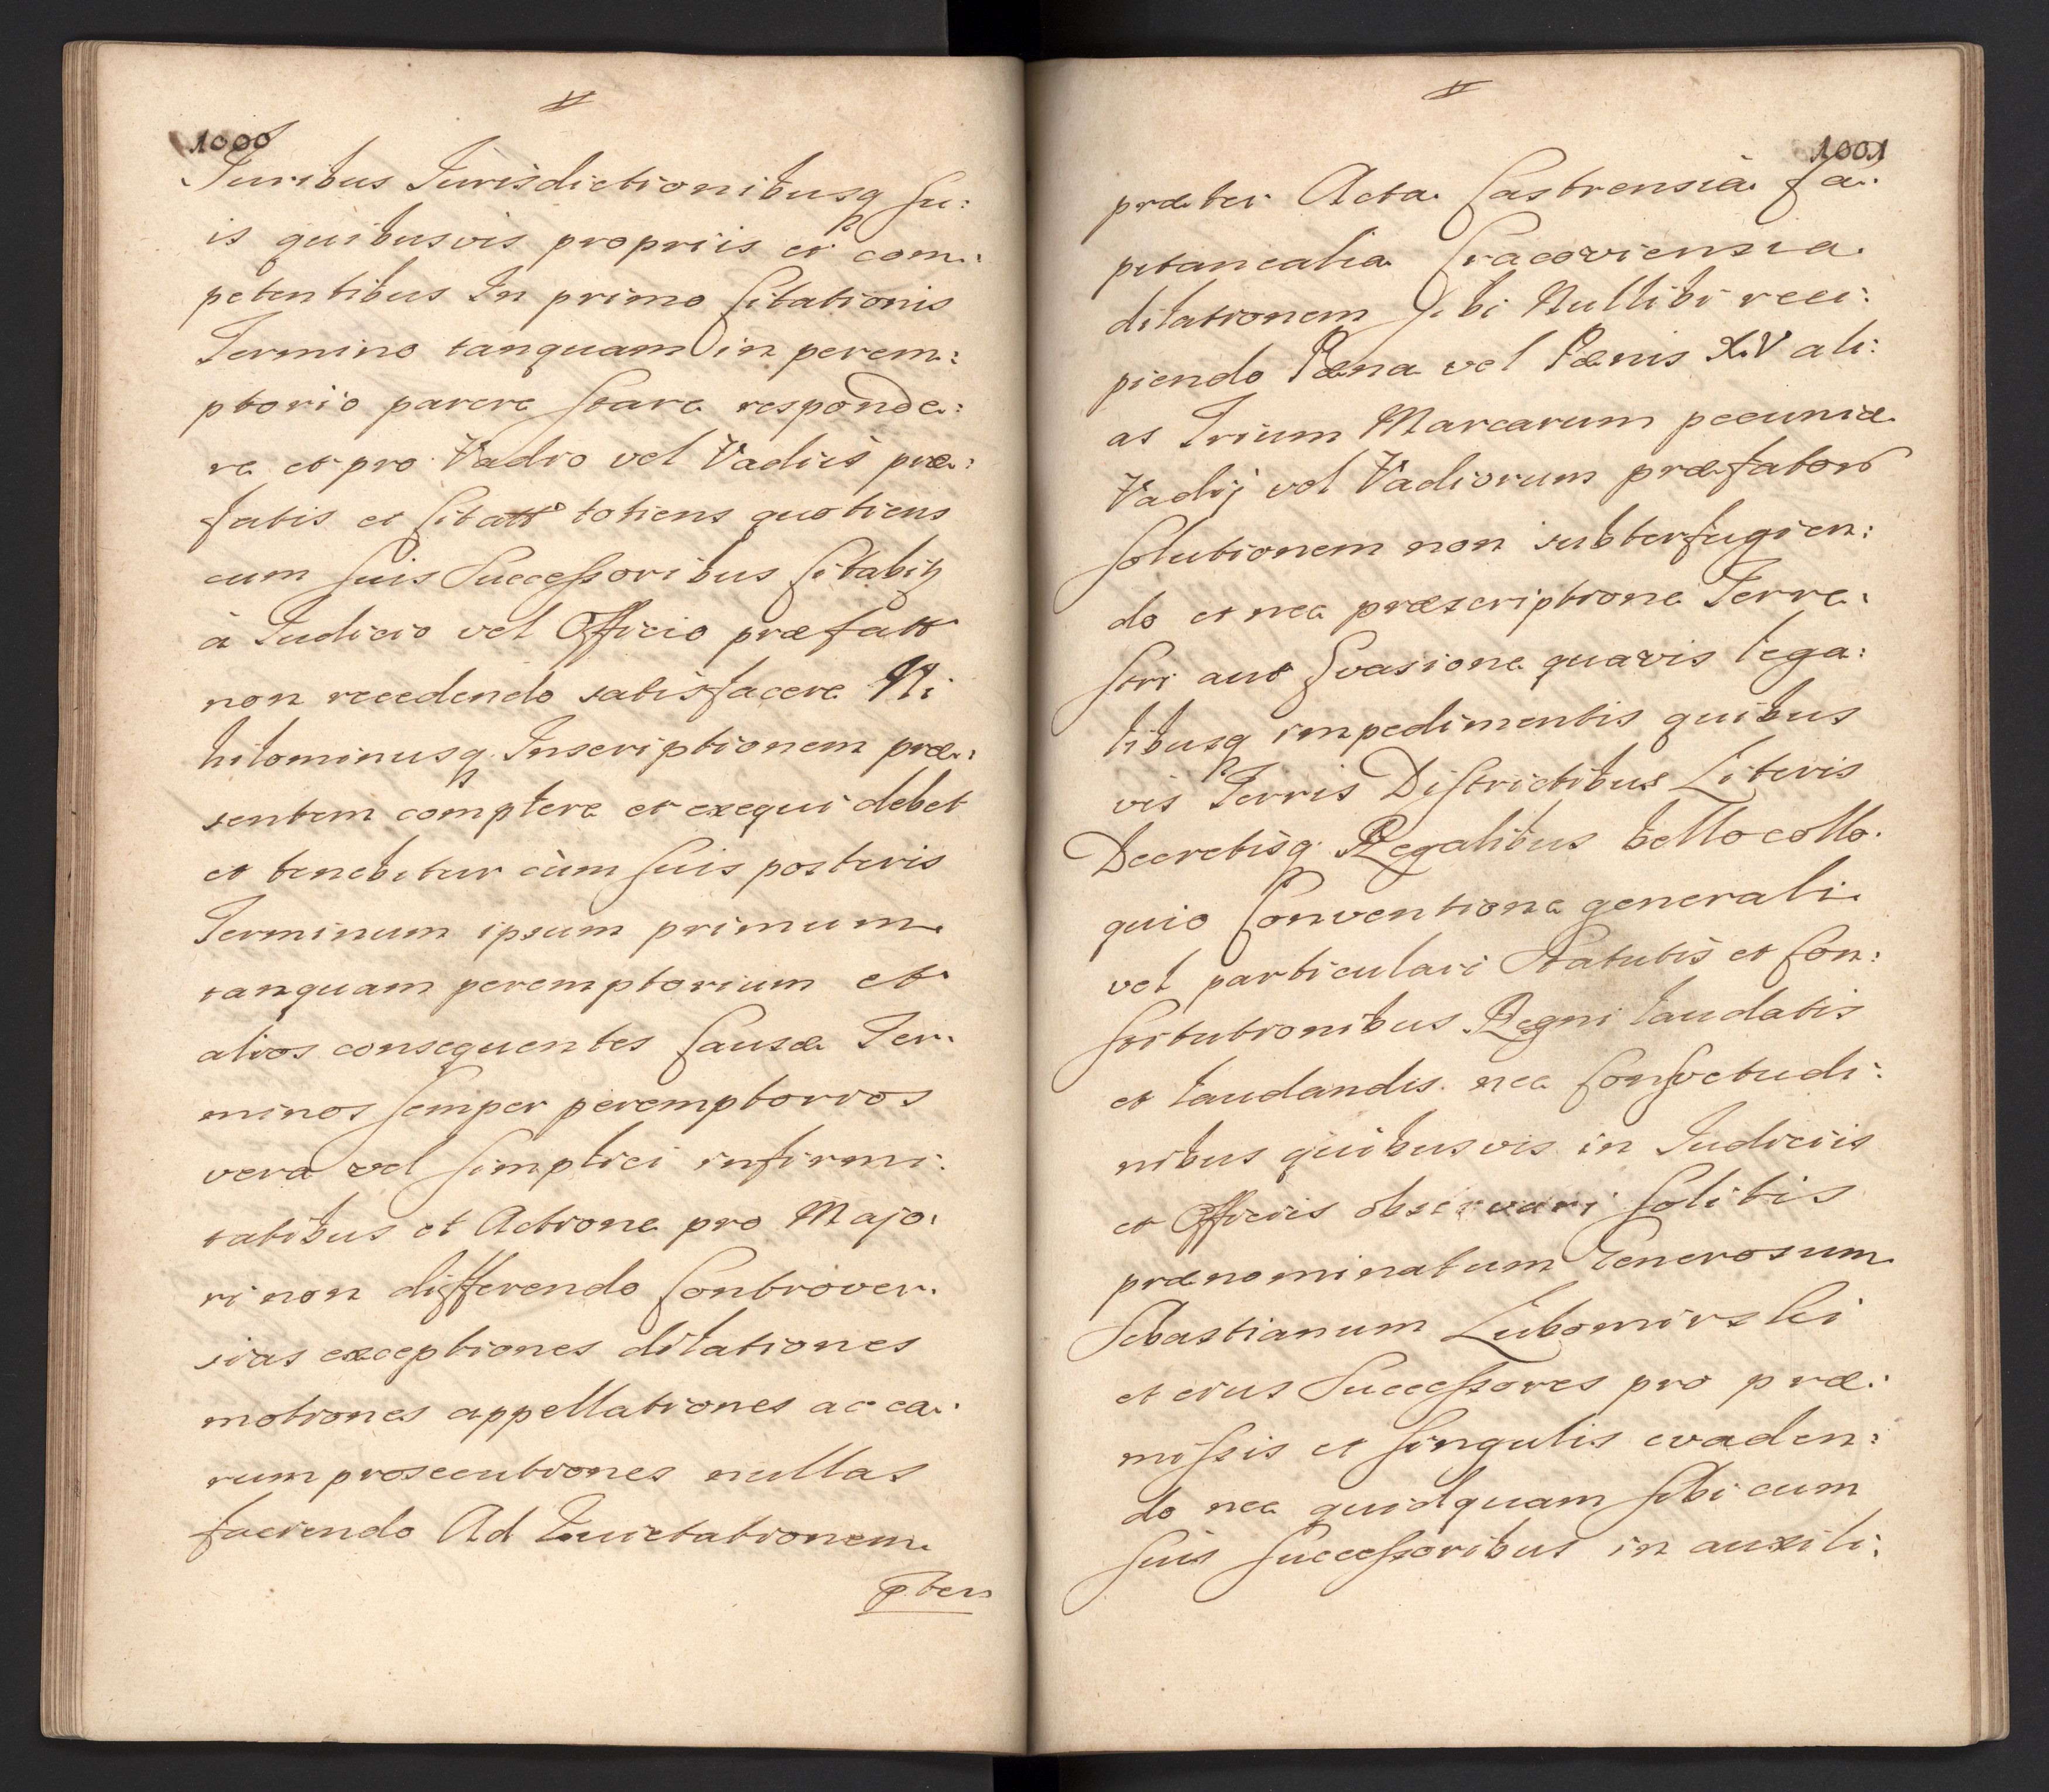 1000
Juribus Jurisdictionibusq su:
is quibusvis propriis et com:
petentibus In primo Citationis
Termino tanquam in perem:
ptorio parere stare responde:
re et pro Vadio vel Vadiis præ:
fatis et Citatt totiens quotiens
cum suis Successoribus Citabitz
à Judicio vel Officio præfatt
non recedendo satisfacere Ni
hilominusq Inscriptionem præ:
sentem complere et exequi debet
et tenebitur cùm suis posteris
Terminum ipsum primum
tanquam peremptorium et
alios consequentes Causæ Ter:
minos semper peremptorios
vera vel simplici infirmi:
tatibus et Actione pro Majo:
ri non differendo Controver:
sias exceptiones dilationes
motiones appellationes ac ea:
rum prosecutiones nullas
faciendo Ad Quietationem
præter
1001
præter Acta Castrensia Ca:
pitanealia Cracoviensia
dilationem sibi Nullibi reci:
piendo Pæna vel Pænis XIV ali:
as Trium Marcarum pecuniæ
Vadij vel Vadiorum præfator
Solutionem non subterfugien:
do et nec præscriptione Terre:
stri aut Evasione quavis lega:
libusq impedimentis quibus
vis Terris Districtibus Literis
Decretisq Regalibus bello collo:
quio Conventione generali
vel particulari Statutis et Con:
stitutionibus Regni laudatis
et laudandis nec Consvetudi:
nibus quibusvis in Judiciis
et Officiis observari solitis
prænominatum Generosum
Sebastianum Lubomirski
et eius Successores pro præ:
missis et singulis evaden:
do nec quidquam sibi cum
suis Successoribus in auxili: